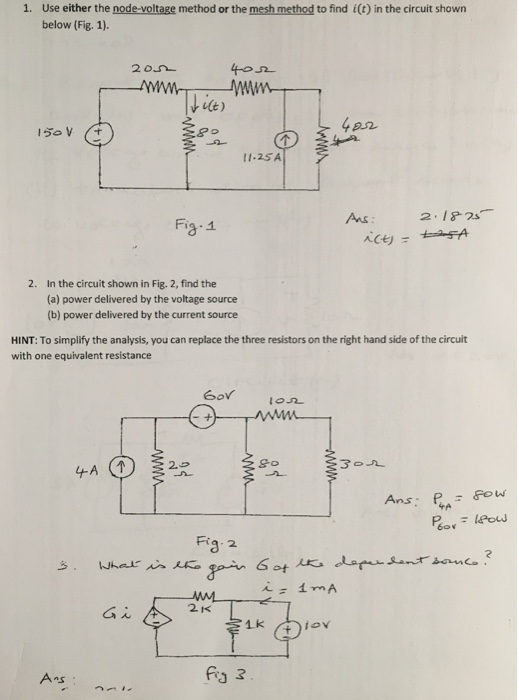 1. Use either the node-voltage method or the mesh method to find i(t) in the circuit shown
below (Fig. 1).
20Ω 40Ω
i(t)
150 V + 80
Ω
11.25 A
40Ω
Fig. 1
Ans: 2.1875
i(t) = 1.25A
2. In the circuit shown in Fig. 2, find the
(a) power delivered by the voltage source
(b) power delivered by the current source
HINT: To simplify the analysis, you can replace the three resistors on the right hand side of the circuit
with one equivalent resistance
60V 10Ω
- +
4A 20
Ω
80
Ω
30Ω
Ans: P4A = 80W
P60V = 180W
Fig. 2
3. What is the gain G of the dependent source?
i = 1mA
2K
Gi + 1K + 10V
Ans:
Fig 3.